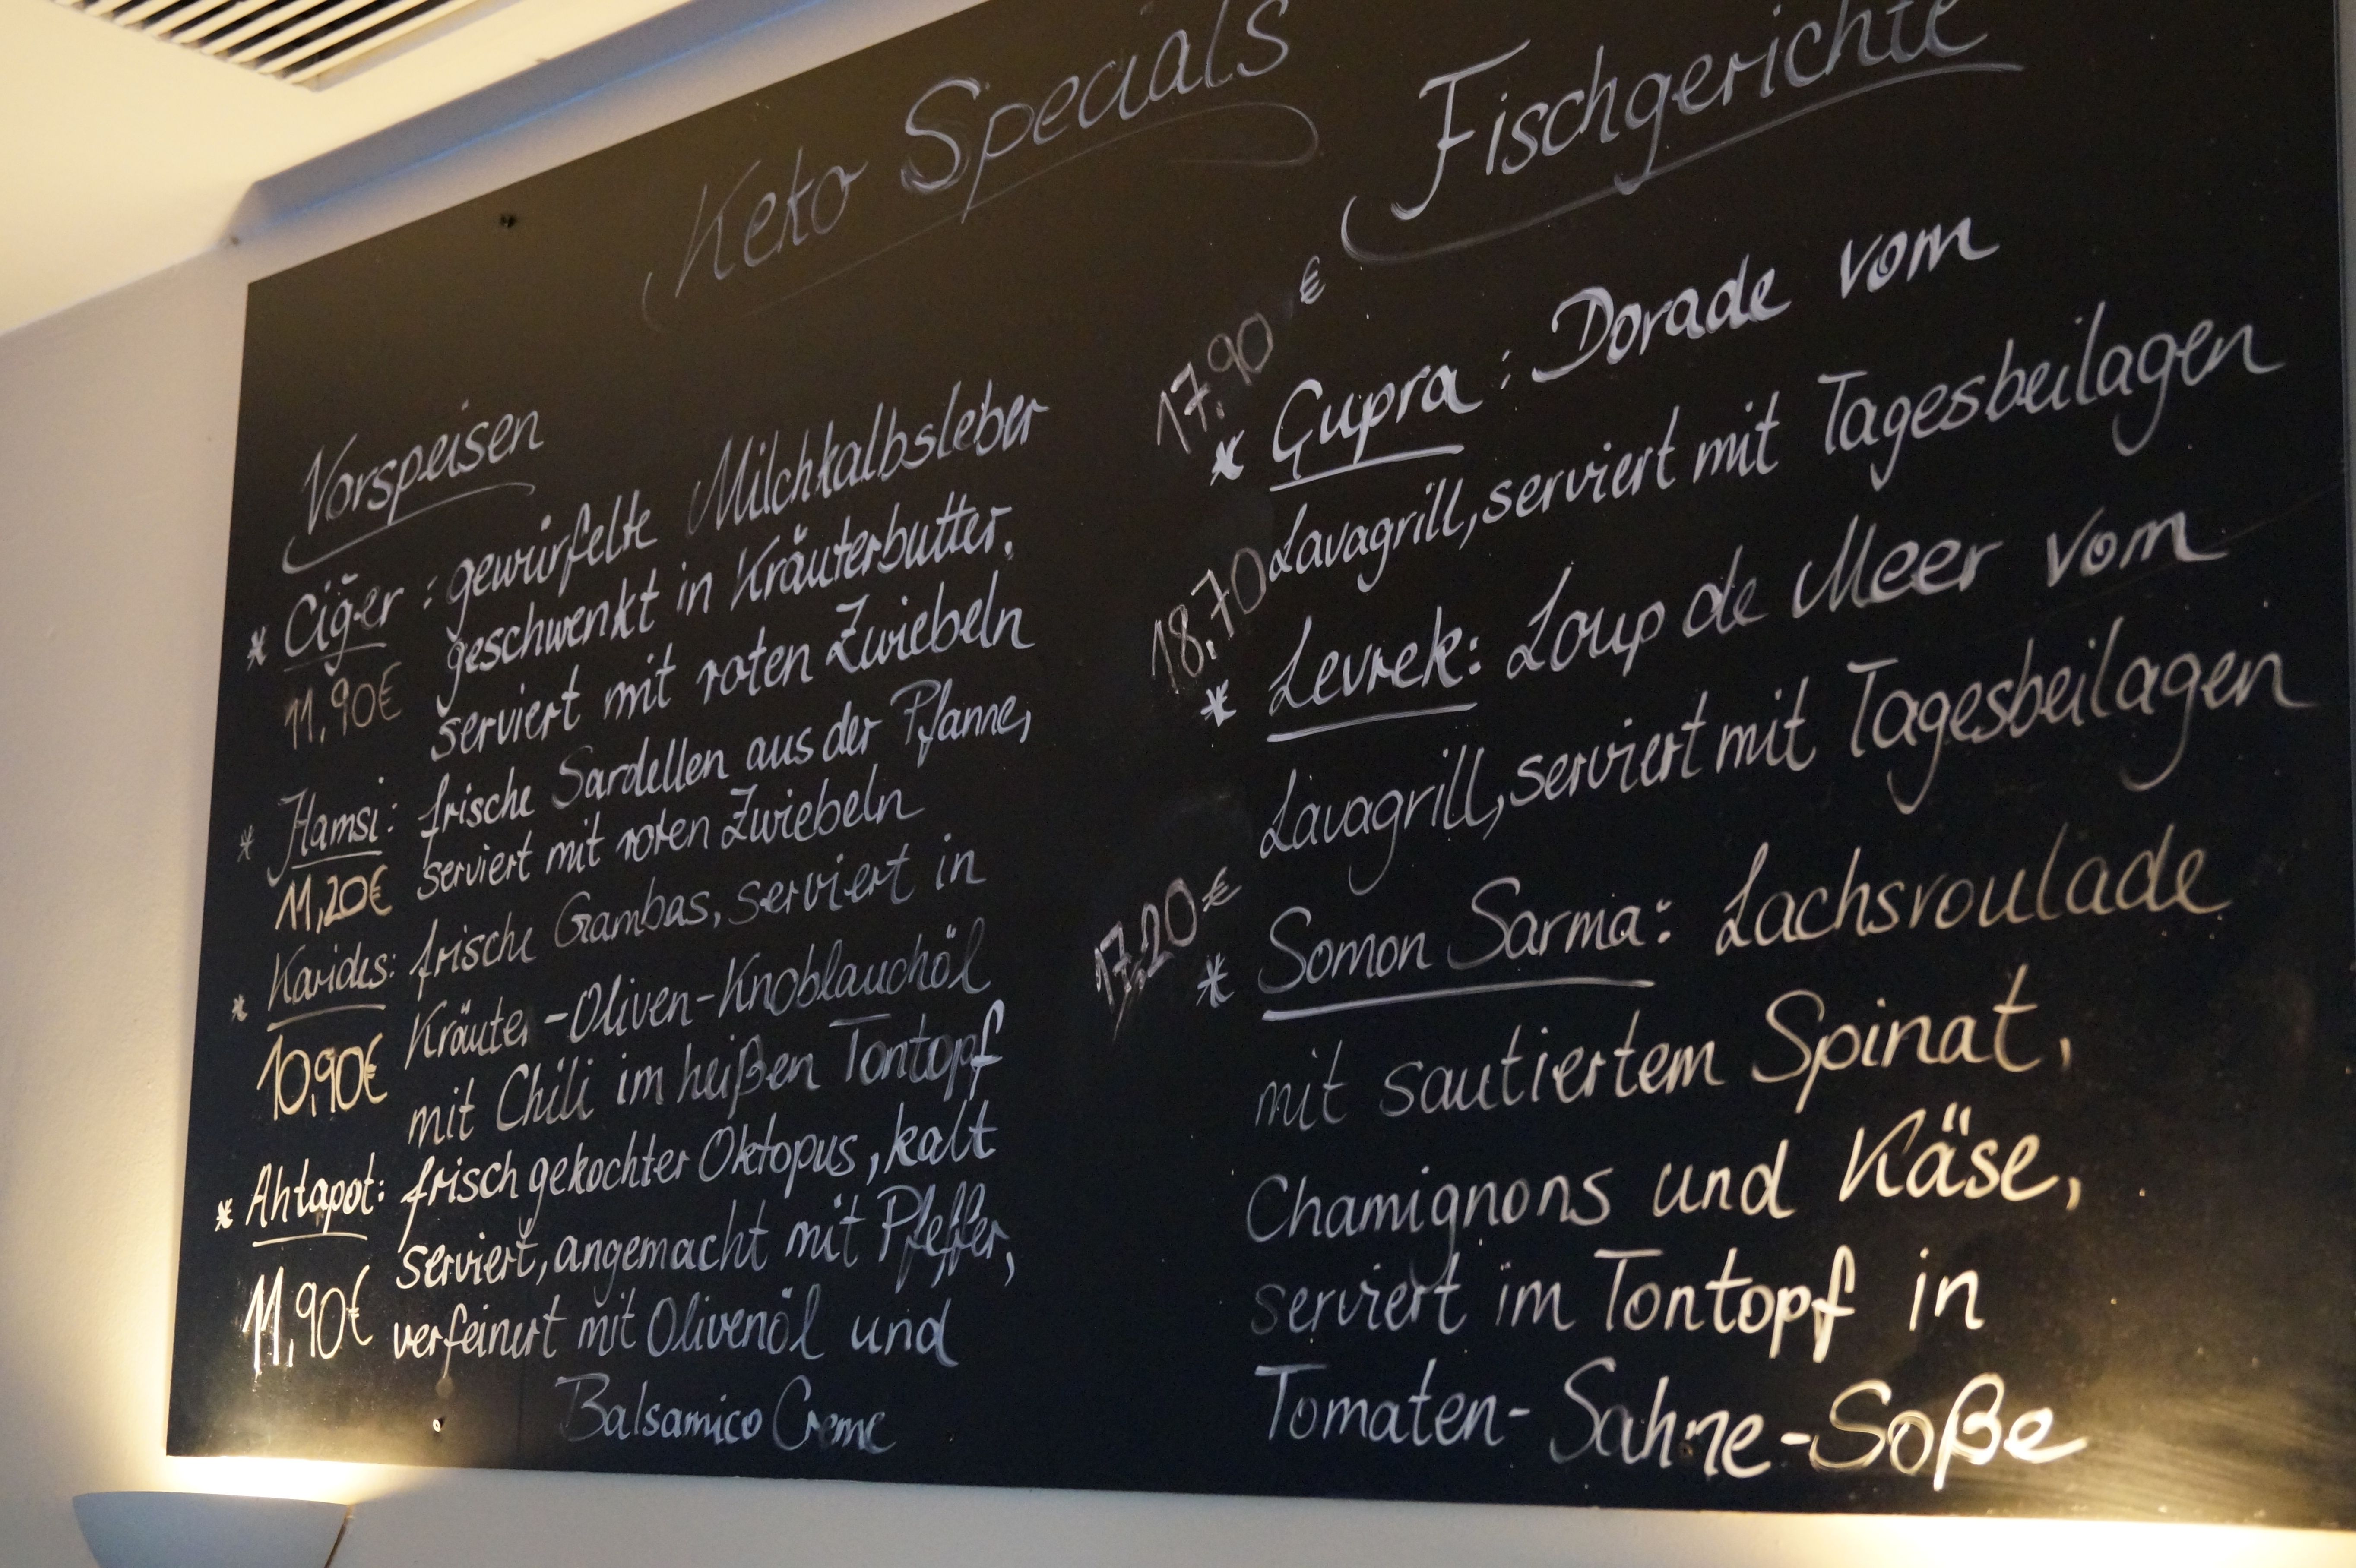 Keto Specials
Vorspeisen
* Ciğer : gewürfelte Milchkalbsleber
11,90€ geschwenkt in Kräuterbutter.
serviert mit roten Zwiebeln
* Hamsi: frische Sardellen aus der Pfanne,
11,20€ serviert mit roten Zwiebeln
* Karides: frische Gambas, serviert in
10,90€ Kräuter-Oliven-Knoblauchöl
mit Chili im heißen Tontopf
* Ahtapot: frisch gekochter Oktopus, kalt
serviert, angemacht mit Pfeffer,
11,90€ verfeinert mit Olivenöl und
Balsamico Creme
Fischgerichte
17,90 €
* Çupra : Dorade vom
Lavagrill, serviert mit Tagesbeilagen
18,70
* Levrek: Loup de Meer vom
Lavagrill, serviert mit Tagesbeilagen
17,20€
* Somon Sarma: Lachsroulade
mit sautiertem Spinat,
Chamignons und Käse,
serviert im Tontopf in
Tomaten-Sahne-Soße